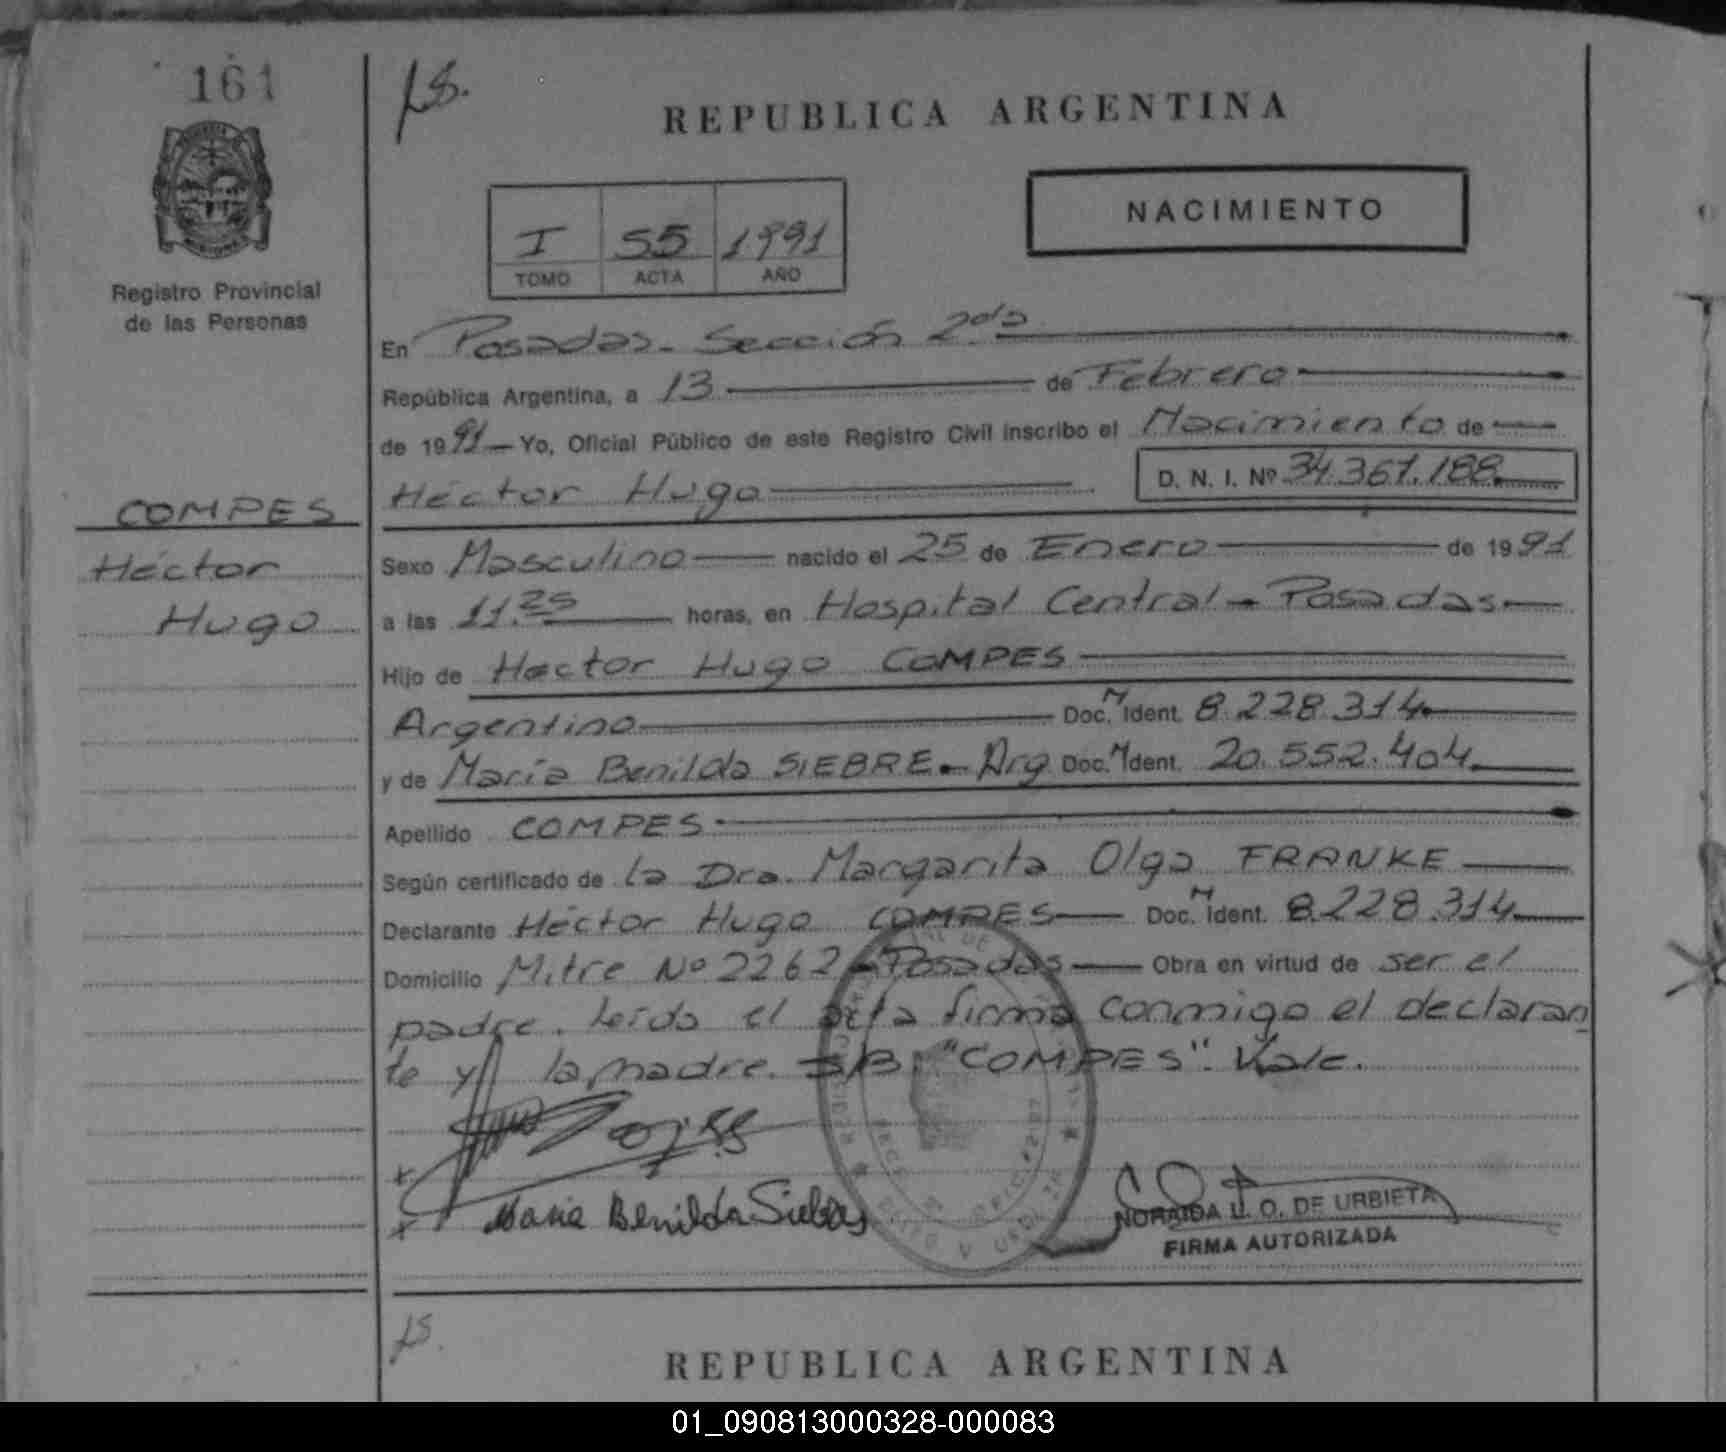 161
LS.
REPUBLICA ARGENTINA
NACIMIENTO
I 55 1991
TOMO ACTA AÑO
Registro Provincial
de las Personas
En Posadas - Sección 2.da
República Argentina, a 13 de Febrero
de 1991 - Yo, Oficial Público de este Registro Civil inscribo el Nacimiento de
Héctor Hugo D. N. I. Nº 34.367.188.
COMPES
Héctor
Hugo
Sexo Masculino nacido el 25 de Enero de 1991
a las 11.25 horas, en Hospital Central - Posadas
Hijo de Hector Hugo COMPES
Argentino Doc. M Ident. 8.228.314.
y de María Benilda SIEBRE. - Arg Doc. M Ident. 20.552.404.
Apellido COMPES
Según certificado de la Dra. Margarita Olga FRANKE
Declarante Héctor Hugo COMPES Doc. M Ident. 8.228.314
Domicilio Mitre Nº 2262 - Posadas Obra en virtud de ser el
padre. leída el acta firma conmigo el declaran
te y la madre. S/B: "COMPES". Vale.
Maria Benilda
NORAIDA U. O. DE URBIETA
FIRMA AUTORIZADA
LS.
REPUBLICA ARGENTINA
01_090813000328-000083